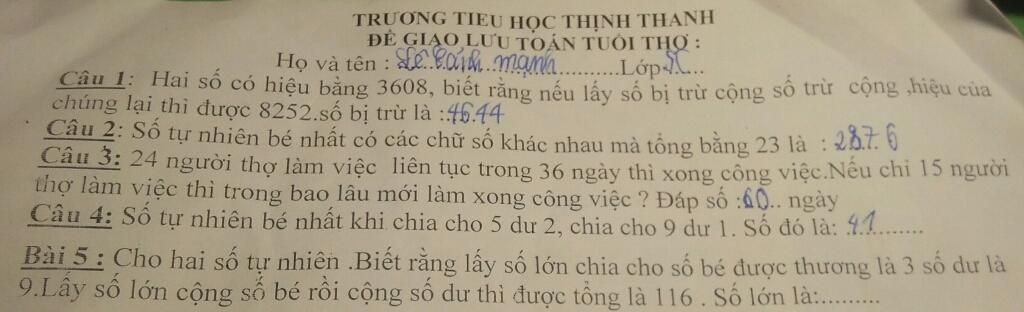 TRƯƠNG TIEU HỌC THỊNH THANH
ĐÊ GIAO LƯU TOÁN TUỔI THƠ :
Họ và tên : Lê mạnh...........Lớp 5C...
Câu 1: Hai số có hiệu bằng 3608, biết rằng nếu lấy số bị trừ cộng số trừ cộng ,hiệu của
chúng lại thì được 8252.số bị trừ là :4644
Câu 2: Số tự nhiên bé nhất có các chữ số khác nhau mà tổng bằng 23 là :
Câu 3: 24 người thợ làm việc liên tục trong 36 ngày thì xong công việc.Nếu chỉ 15 người
thợ làm việc thì trong bao lâu mới làm xong công việc ? Đáp số :60.. ngày
Câu 4: Số tự nhiên bé nhất khi chia cho 5 dư 2, chia cho 9 dư 1. Số đó là:
Bài 5 : Cho hai số tự nhiên .Biết rằng lấy số lớn chia cho số bé được thương là 3 số dư là
9.Lấy số lớn cộng số bé rồi cộng số dư thì được tổng là 116 . Số lớn là:.........